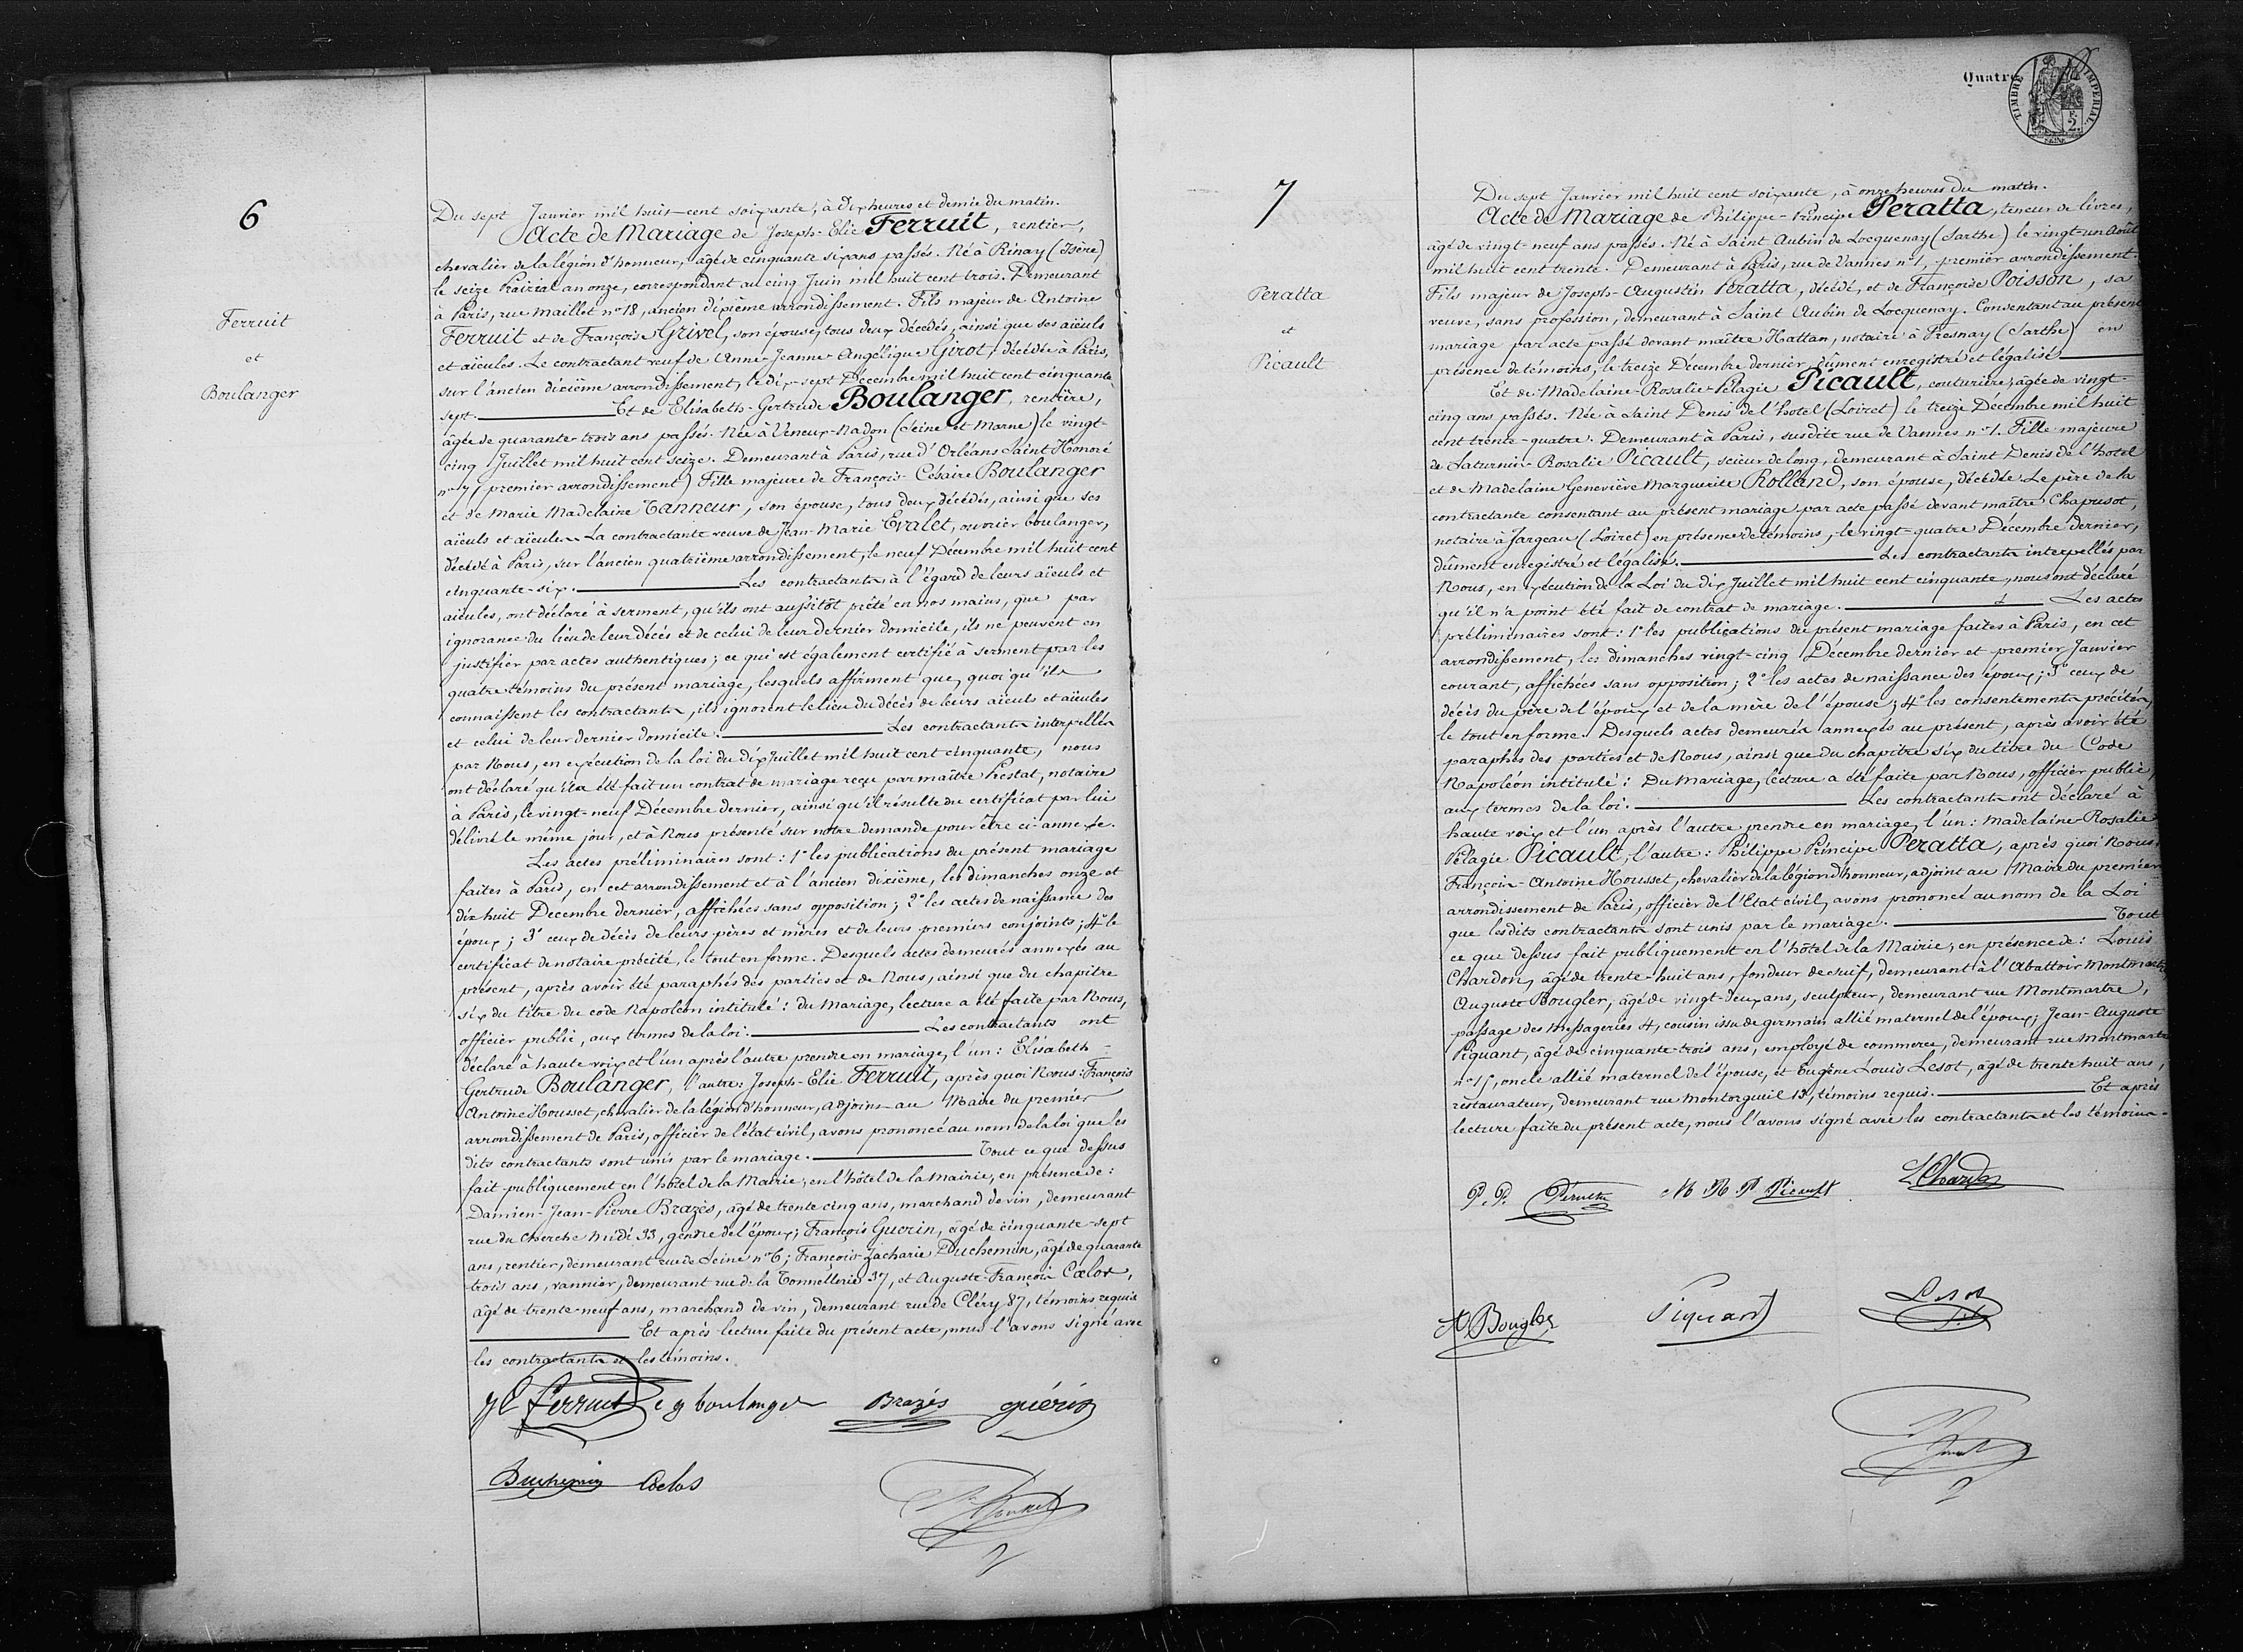 6
Ferruit
et
Boulanger
Du sept Janvier mil huit-cent soixante, à dix heures et demie du matin.
Acte de Mariage de Joseph-Elie Ferruit, rentier,
chevalier de la légion d'honneur, âgé de cinquante six ans passés. Né à Rénay (Isère)
le seize Prairial an onze, correspondant au cinq Juin mil huit cent trois. Demeurant
à Paris, rue Maillet n° 18, ancien dixième arrondissement. Fils majeur de Antoine
Ferruit et de Françoise Grivel, son épouse, tous deux décédés, ainsi que ses aïeuls
et aïeules. Le contractant veuf de Anne-Jeanne-Angélique Girot, décédée à Paris,
sur l'ancien dixième arrondissement, le dix-sept Décembre mil huit cent cinquante
sept. Et de Elisabeth-Gertrude Boulanger, rentière,
âgée de quarante-trois ans passés. Née à Veneux-Nadon (Seine et Marne) le vingt-
cinq Juillet mil huit cent seize. Demeurant à Paris, rue d'Orléans Saint Honoré
n° 17 (premier arrondissement) Fille majeure de François-Césaire Boulanger
et de Marie Madelaine Tanneur, son épouse, tous deux décédés, ainsi que ses
aïeuls et aïeules. La contractante veuve de Jean-Marie Evalet, ouvrier boulanger,
décédé à Paris, sur l'ancien quatrième arrondissement, le neuf Décembre mil huit cent
cinquante-six. Les contractants à l'égard de leurs aïeuls et
aïeules, ont déclaré à serment, qu'ils ont aussitôt prêté en nos mains, que par
ignorance du lieu de leur décès et de celui de leur dernier domicile, ils ne peuvent en
justifier par actes authentiques; ce qui est également certifié à serment par les
quatre témoins du présent mariage, lesquels affirment que, quoiqu'ils
connaissent les contractants, ils ignorent le lieu du décès de leurs aïeuls et aïeules
et celui de leur dernier domicile. Les contractants interpellés
par Nous, en exécution de la loi du dix Juillet mil huit cent cinquante, nous
ont déclaré qu'il a été fait un contrat de mariage reçu par maître Prestat, notaire
à Paris, le vingt-neuf Décembre dernier, ainsi qu'il résulte du certificat par lui
délivré le même jour, et à Nous présenté sur notre demande pour être ci-annexé.
Les actes préliminaires sont: 1° les publications du présent mariage
faites à Paris, en cet arrondissement et à l'ancien dixième, les dimanches onze et
dix huit Décembre dernier, affichées sans opposition; 2° les actes de naissance des
époux; 3° ceux de décès de leurs pères et mères et de leurs premiers conjoints; 4° le
certificat de notaire précité, le tout en forme. Desquels actes demeurés annexés au
présent, après avoir été paraphés des parties et de Nous, ainsi que du chapitre
six du titre du code Napoléon intitulé: du Mariage, lecture a été faite par Nous,
officier public, aux termes de la loi. Les contractants ont
déclaré à haute voix et l'un après l'autre prendre en mariage, l'un: Elisabeth-
Gertrude Boulanger, l'autre: Joseph-Elie Ferruit, après quoi Nous: François
Antoine Housset, chevalier de la légion d'honneur, adjoint au Maire du premier
arrondissement de Paris, officier de l'état civil, avons prononcé au nom de la loi que les
dits contractants sont unis par le mariage. Tout ce que dessus
fait publiquement en l'hôtel de la Mairie, en l'hôtel de la Mairie, en présence de:
Damien-Jean-Pierre Brazès, âgé de trente cinq ans, marchand de vin, demeurant
rue du Cherche midi 33, gendre de l'époux; François Guérin, âgé de cinquante-sept
ans, rentier, demeurant rue de Seine n° 6; François-Zacharie Duchemin, âgé de quarante
trois ans, vannier, demeurant rue de la Tonnellerie 37, et Auguste-François Cœlos,
âgé de trente-neuf ans, marchand de vin, demeurant rue de Cléry 87, témoins requis
Et après lecture faite du présent acte, nous l'avons signé avec
les contractants et les témoins.
J E Ferruit e g boulanger Brazès guérin
Duchemin Cœlos
7
Peratta
et
Picault
Quatre
TIMBRE IMPÉRIAL
Du sept Janvier mil huit cent soixante, à onze heures du matin.
Acte de Mariage de Philippe-Principe Peratta, teneur de livres,
âgé de vingt-neuf ans passés. Né à Saint Aubin de Locquenay (Sarthe) le vingt-un Août
mil huit cent trente. Demeurant à Paris, rue de Vannes n° 1, premier arrondissement.
Fils majeur de Joseph-Augustin Peratta, décédé, et de Françoise Poisson, sa
veuve, sans profession, demeurant à Saint Aubin de Locquenay. Consentant au présent
mariage par acte passé devant maître Hattan, notaire à Fresnay (Sarthe) en
présence de témoins, le treize Décembre dernier, dûment enregistré et légalisé
Et de Madelaine-Rosalie-Pélagie Picault, couturière, âgée de vingt-
cinq ans passés. Née à Saint Denis de l'hotel (Loiret) le treize Décembre mil huit
cent trente-quatre. Demeurant à Paris, susdite rue de Vannes n° 1. Fille majeure
de Saturnin-Rosalie Picault, scieur de long, demeurant à Saint Denis de l'hotel
et de Madelaine Geneviève Marguerite Rolland, son épouse, décédée. Le père de la
contractante consentant au présent mariage par acte passé devant maître Chapusot,
notaire à Jargeau (Loiret) en présence de témoins, le vingt-quatre Décembre dernier,
dûment enregistré et légalisé. Les contractants interpellés par
Nous, en exécution de la Loi du dix Juillet mil huit cent cinquante, nous ont déclaré
qu'il n'a point été fait de contrat de mariage. Les actes
préliminaires sont: 1° les publications du présent mariage faites à Paris, en cet
arrondissement, les dimanches vingt-cinq Décembre dernier et premier Janvier
courant, affichées sans opposition; 2° les actes de naissance des époux; 3° ceux de
décès du père de l'époux et de la mère de l'épouse; 4° les consentements précités,
le tout en forme. Desquels actes demeurés annexés au présent, après avoir été
paraphés des parties et de Nous, ainsi que du chapitre six du titre du Code
Napoléon intitulé: Du Mariage, lecture a été faite par Nous, officier public,
aux termes de la loi. Les contractants ont déclaré à
haute voix et l'un après l'autre prendre en mariage, l'un: Madelaine-Rosalie
Pélagie Picault, l'autre: Philippe Principe Peratta, après quoi Nous,
François-Antoine Housset, chevalier de la légion d'honneur, adjoint au Maire du premier
arrondissement de Paris, officier de l'Etat civil, avons prononcé au nom de la Loi
que lesdits contractants sont unis par le mariage. Tout
ce que dessus fait publiquement en l'hôtel de la Mairie, en présence de: Louis
Chardon, âgé de trente-huit ans, fondeur de suif, demeurant à l'Abattoir Montmartre
Auguste Bougler, âgé de vingt-deux ans, sculpteur, demeurant rue Montmartre,
passage des Messageries 4, cousin issu de germain allié maternel de l'époux; Jean-Auguste
Piquant, âgé de cinquante-trois ans, employé de commerce, demeurant rue Montmartre
n° 15, oncle allié maternel de l'épouse, et Eugène Louis Lesot, âgé de trente huit ans,
restaurateur, demeurant rue Montorgueil 13, témoins requis. Et après
lecture faite du présent acte, nous l'avons signé avec les contractants et les témoins.
P. P. M R P Picault L Chardon
A. Bougler Piquant